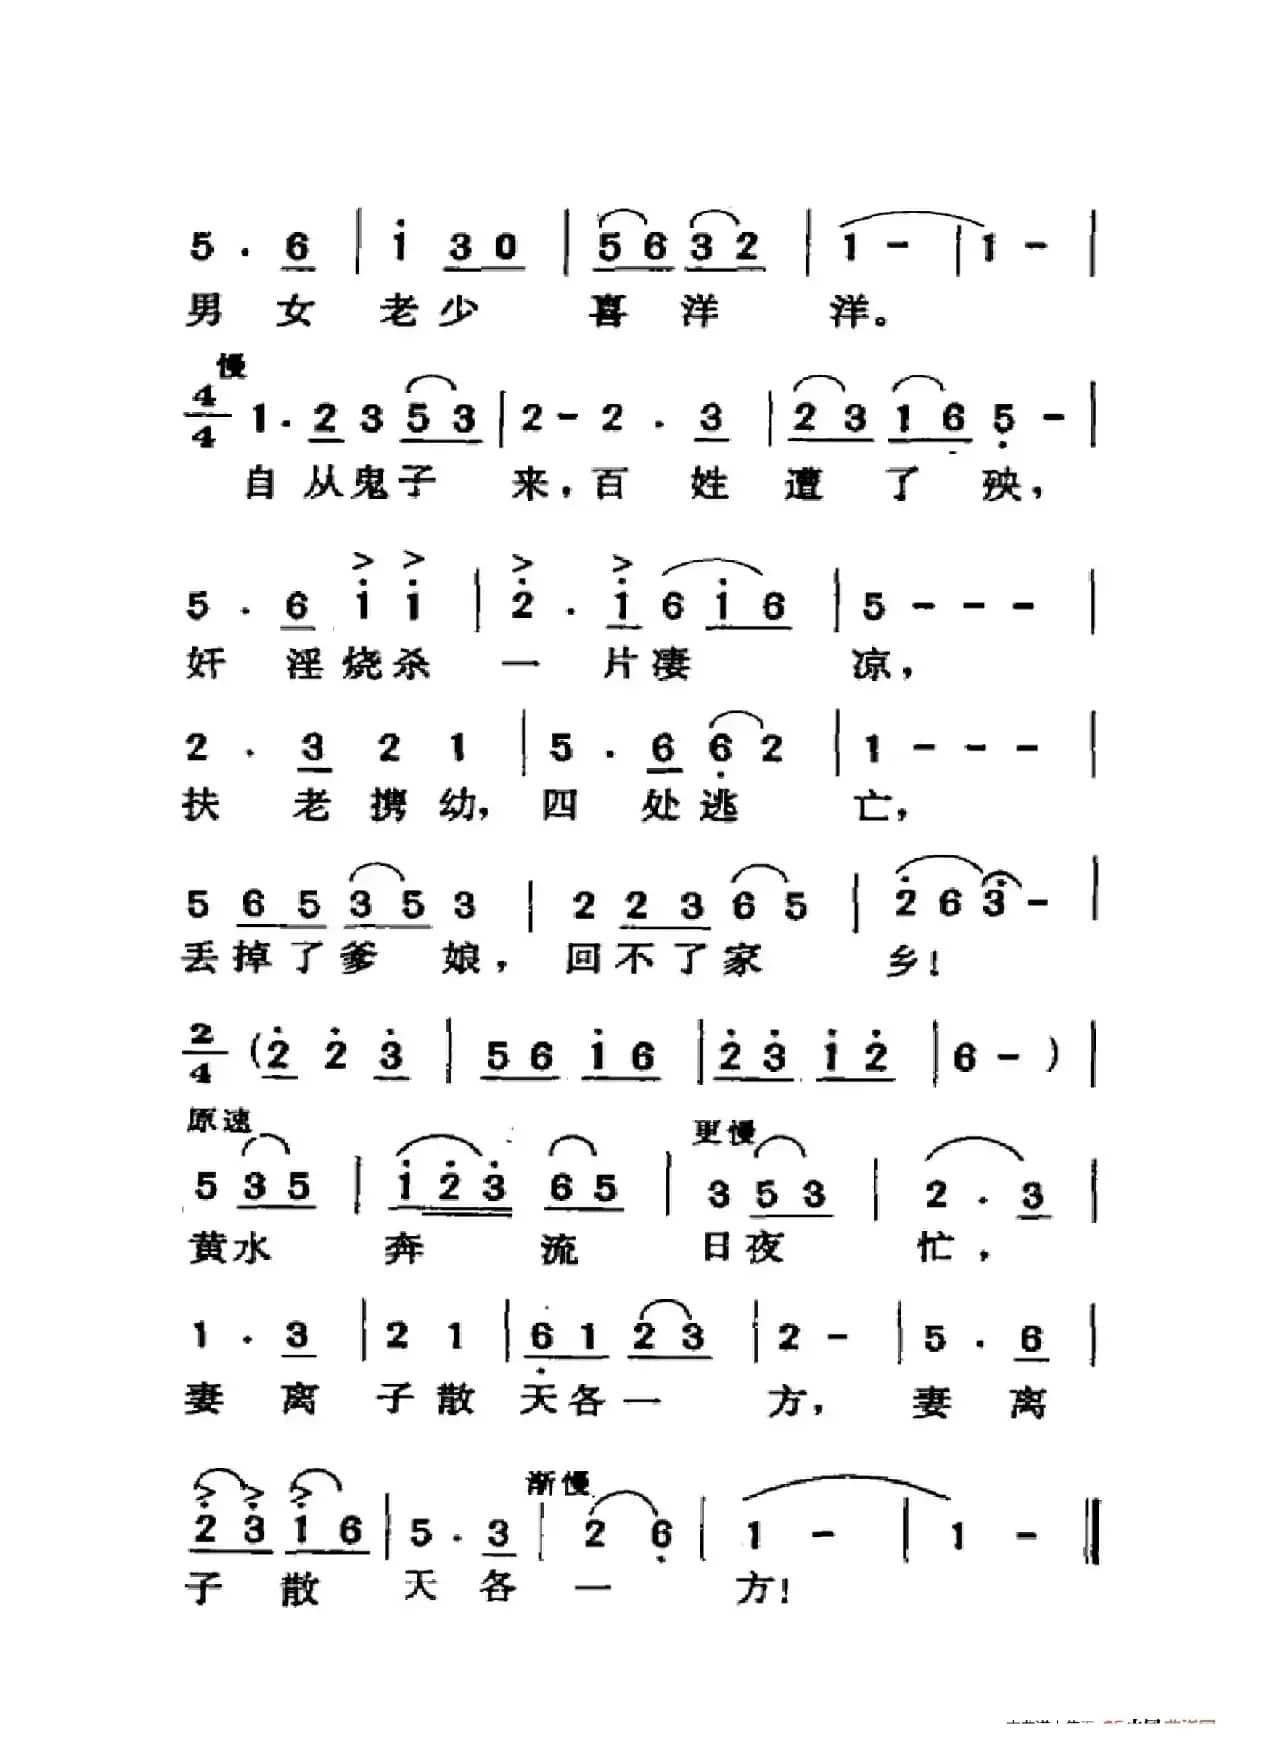 5 . 6 | i 3 0 | 5 6 3 2 | 1 - | 1 - |
男 女 老 少 喜 洋 洋。
慢
4/4 1 . 2 3 5 3 | 2 - 2 . 3 | 2 3 1 6 5 - |
自 从 鬼 子 来，百 姓 遭 了 殃，
5 . 6 i i | 2 . i 6 i 6 | 5 - - - |
奸 淫 烧 杀 一 片 凄 凉，
2 . 3 2 1 | 5 . 6 6 2 | 1 - - - |
扶 老 携 幼，四 处 逃 亡，
5 6 5 3 5 3 | 2 2 3 6 5 | 2 6 3 - |
丢 掉 了 爹 娘，回 不 了 家 乡！
2/4 ( 2 2 3 | 5 6 i 6 | 2 3 i 2 | 6 - ) |
原速 更慢
5 3 5 | i 2 3 6 5 | 3 5 3 | 2 . 3 |
黄 水 奔 流 日 夜 忙，
1 . 3 | 2 1 | 6 1 2 3 | 2 - | 5 . 6 |
妻 离 子 散 天 各 一 方，妻 离
渐慢
2 3 i 6 | 5 . 3 | 2 6 | 1 - | 1 - ‖
子 散 天 各 一 方！